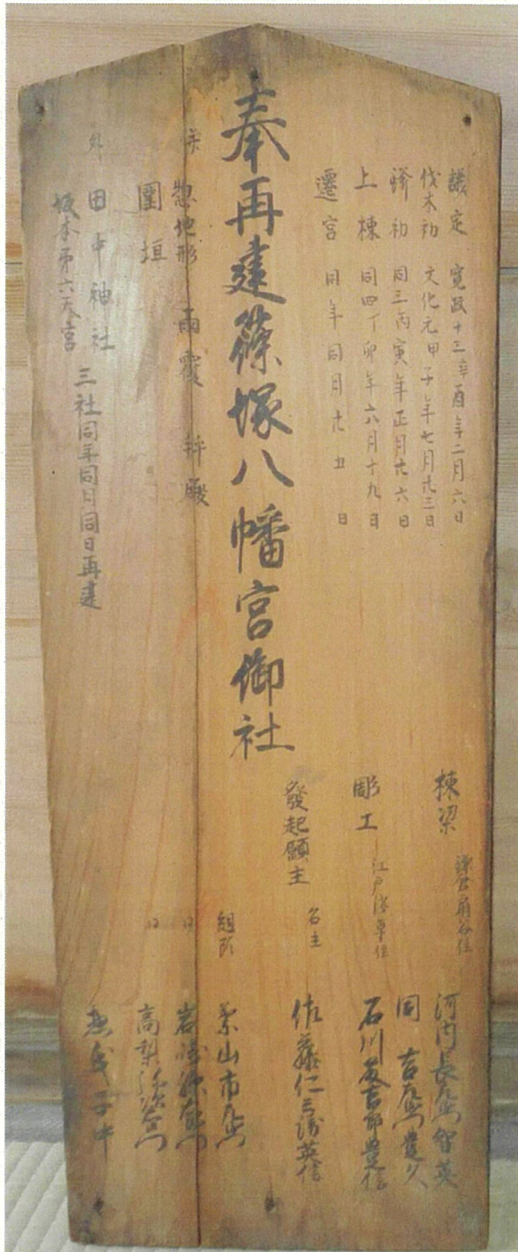 議定 寛政十三辛酉年二月六日
伐木初 文化元甲子年七月廿三日
釿初 同三丙寅年正月廿六日
上棟 同四丁卯年六月十九日
遷宮 同年同月廿五日
奉再建篠塚八幡宮御社
惣地形 雨覆 拝殿
圍垣
外 田中神社
坂本第六天宮
三社同年同月同日再建
棟梁 鎌倉扇谷住 河内長左衛門智英
同 吉左衛門豊久
彫工 江戸浅草住 石川友吉郎豊信
發起願主 名主 佐藤仁左衛門英信
組頭 葉山市左衛門
同 岩崎源左衛門
同 高梨
惣氏子中